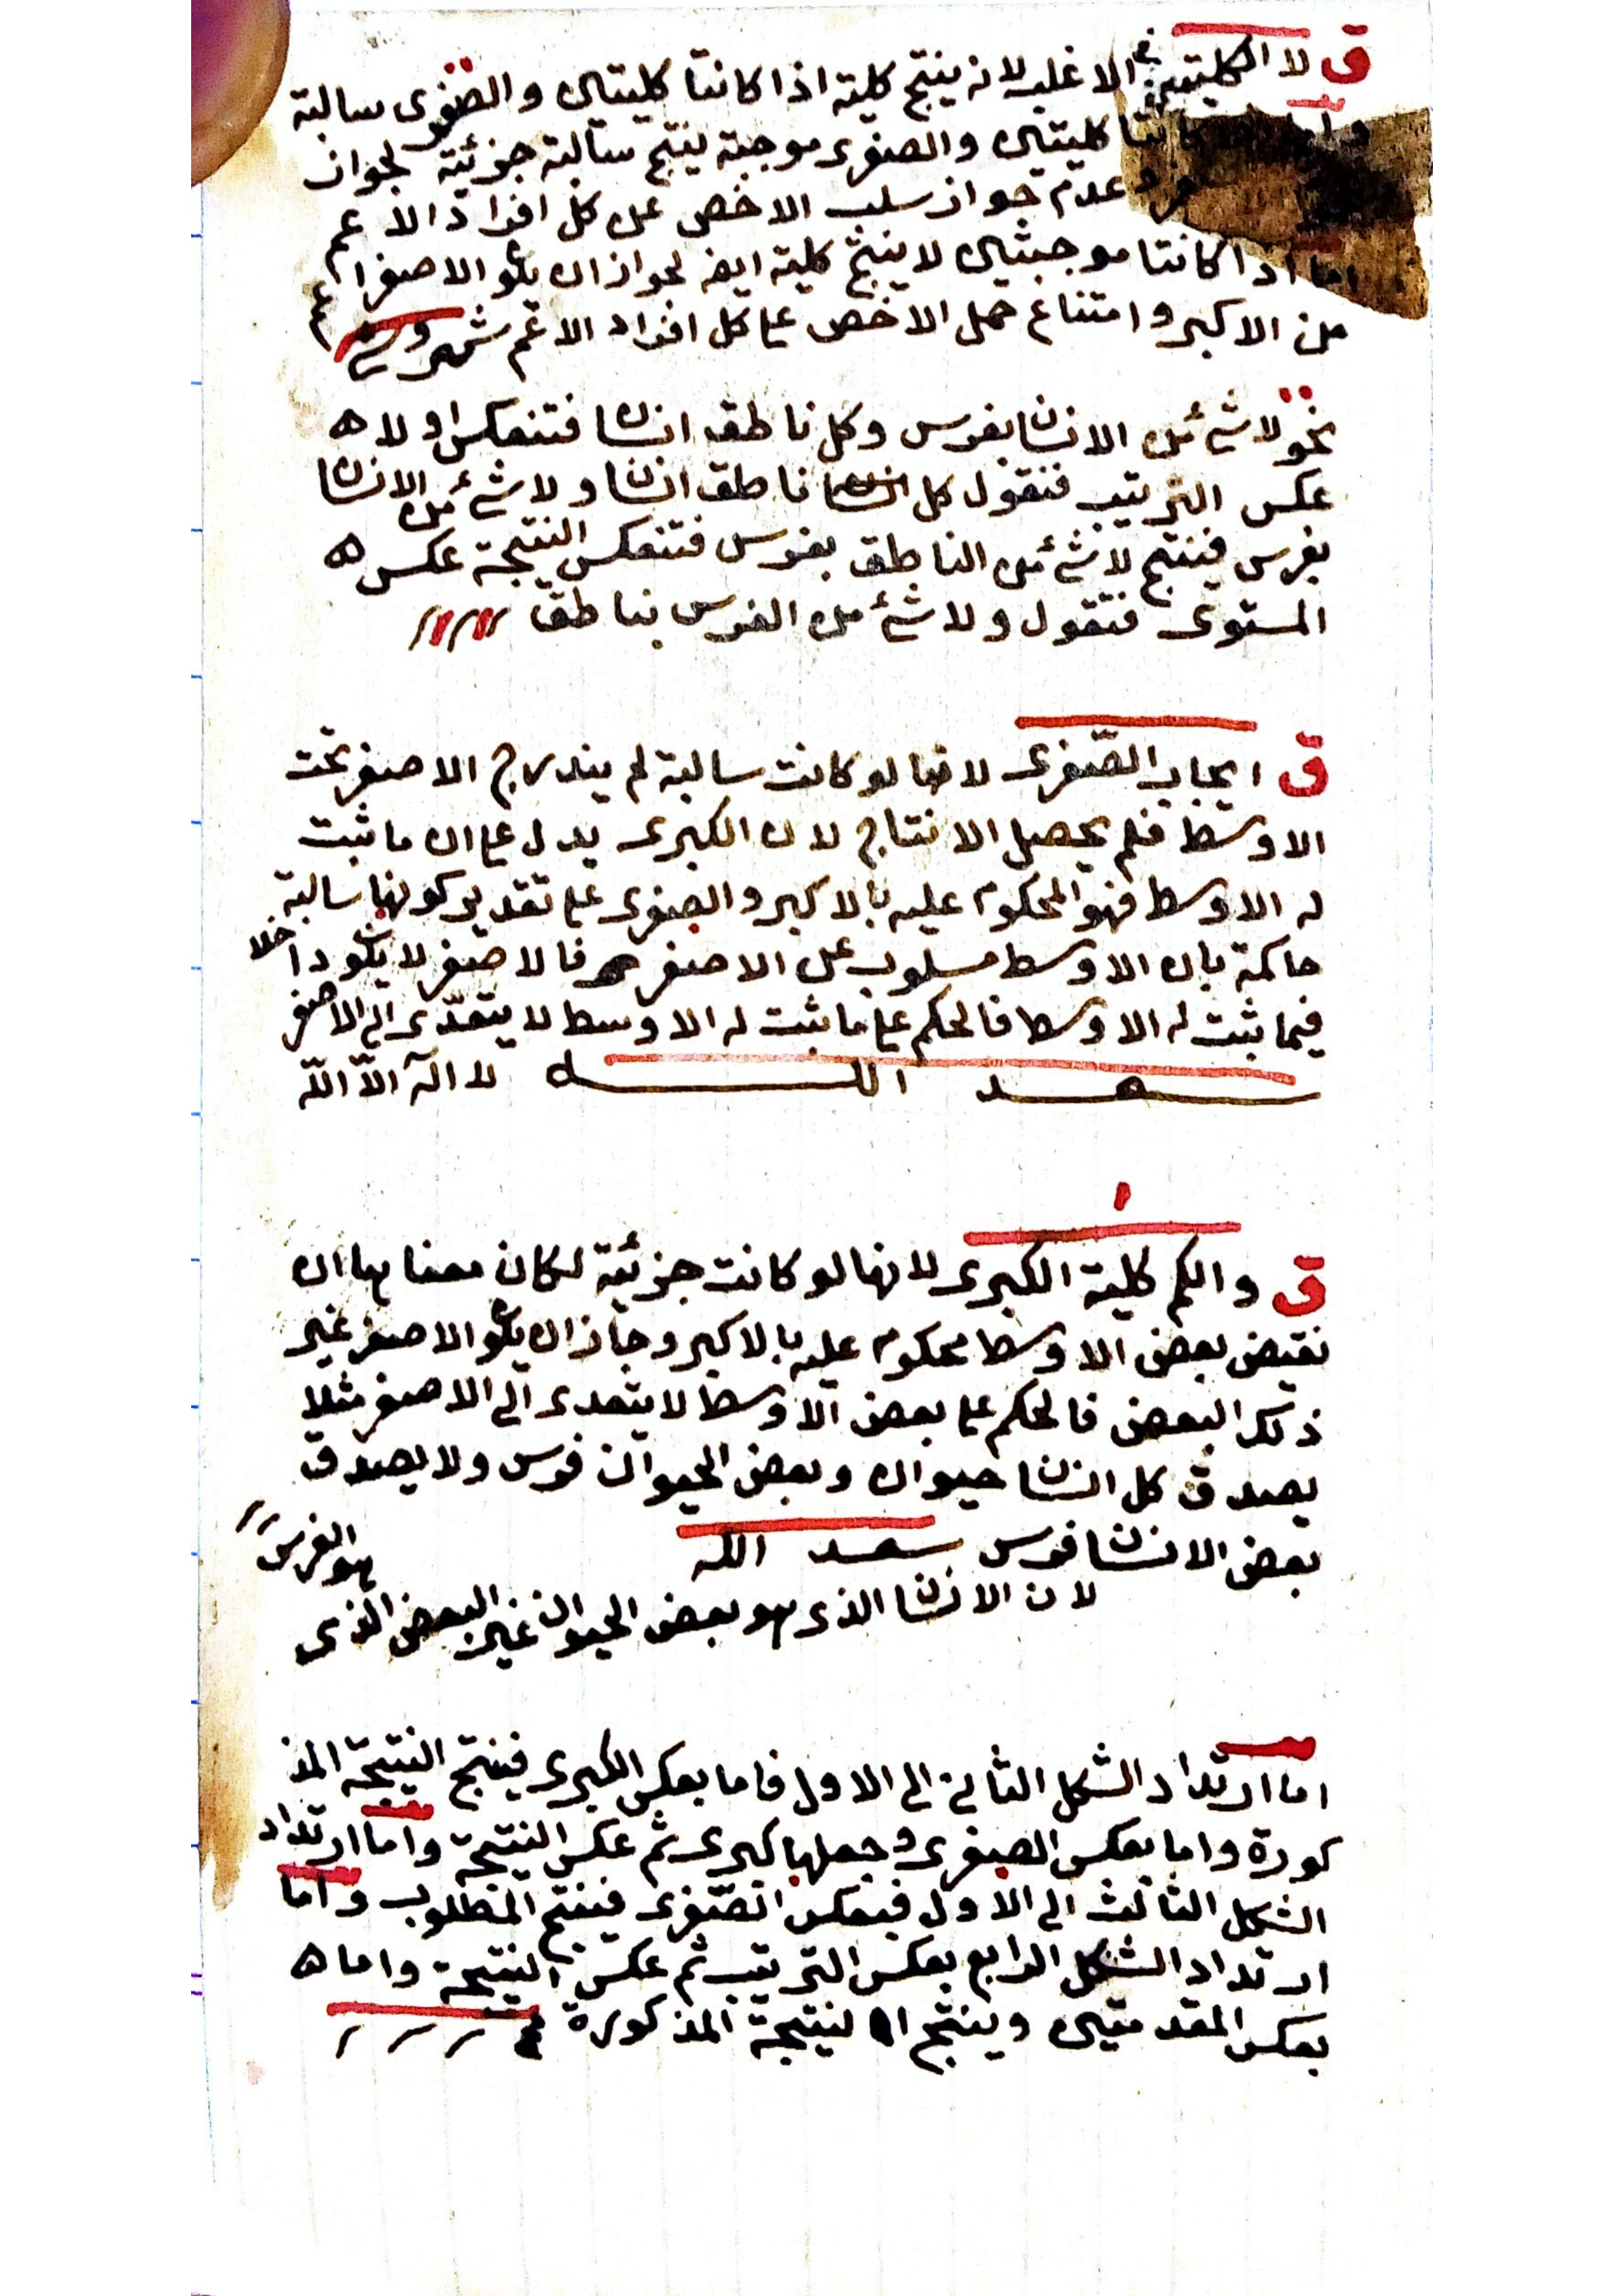 ق لا الكليتين في الاغلب لانه ينتج كلية اذا كانتا كليتين والصغرى سالبة
كانتا كليتين والصغرى موجبة ينتج سالبة جزئية لجواز
وعدم جواز سلب الاخص عن كل افراد الاعم
اما اذا كانتا موجبتين لا ينتج كلية ايضا لجواز ان يكون الاصغر اعم
من الاكبر وامتناع حمل الاخص على كل افراد الاعم شروح
نحو لا شئ من الانسان بفرس وكل ناطق انسان فتنعكس اولا ه
عكس الترتيب فتقول كل ناطق انسان ولا شئ من الانسان
بفرس فينتج لا شئ من الناطق بفرس فتنعكس النتيجة عكس ه
المستوى فتقول ولا شئ من الفرس بناطق
ق ايجاب الصغرى لانها لو كانت سالبة لم يندرج الاصغر تحت
الاوسط فلم يحصل الانتاج لان الكبرى يدل على ان ما ثبت
له الاوسط فهو المحكوم عليه بالاكبر والصغرى على تقدير كونها سالبة
حاكمة بان الاوسط مسلوب عن الاصغر فالاصغر لا يكون داخلا
فيما ثبت له الاوسط فالحكم على ما ثبت له الاوسط لا يتعدى الى الاصغر
سعد الله لا اله الا الله
ق والكم كلية الكبرى لانها لو كانت جزئية لكان معناها ان
نقيض بعض الاوسط محكوم عليه بالاكبر وجاز ان يكون الاصغر غير
ذلك البعض فالحكم على بعض الاوسط لا يتعدى الى الاصغر مثلا
يصدق كل انسان حيوان وبعض الحيوان فرس ولا يصدق
بعض الانسان فرس سعد الله
لان الانسان الذى هو بعض الحيوان غير البعض الذى
هو الفرس
اما ارتداد الشكل الثانى الى الاول فاما بعكس الكبرى فينتج النتيجة المذ
كورة واما بعكس الصغرى وجعلها كبرى ثم عكس النتيجة واما ارتداد
الشكل الثالث الى الاول فبعكس الصغرى فينتج المطلوب واما
ارتداد الشكل الرابع بعكس الترتيب ثم عكس النتيجة واما ه
بعكس المقدمتين وينتج النتيجة المذكورة